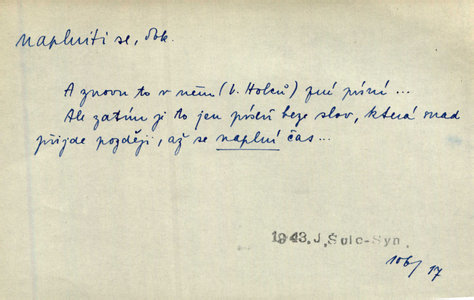 naplniti se, dok.
A znovu to v něm (v. Holců) zní písní ...
Ale zatím je to jen píseň beze slov, která snad
přijde později, až se naplní čas ...
1943. J. Šulc-Syn.
106/17